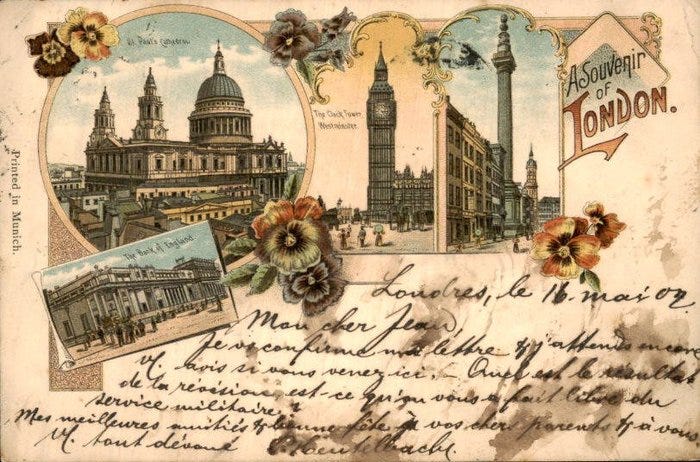 St. Paul's Cathedral.
The Clock Tower,
Westminster.
A Souvenir
OF
LONDON.
Printed in Munich.
The Bank of England
Londres, le 16 mai 02
Mon cher Jean,
Je vous confirme ma lettre & j'attends encore
V. avis si vous venez ici. Quel est le résultat
de la révision, est-ce qu'on vous a fait libre du
service militaire?
Mes meilleures amitiés & bienne fête à vos chers parents & à vous
V. tout dévoué